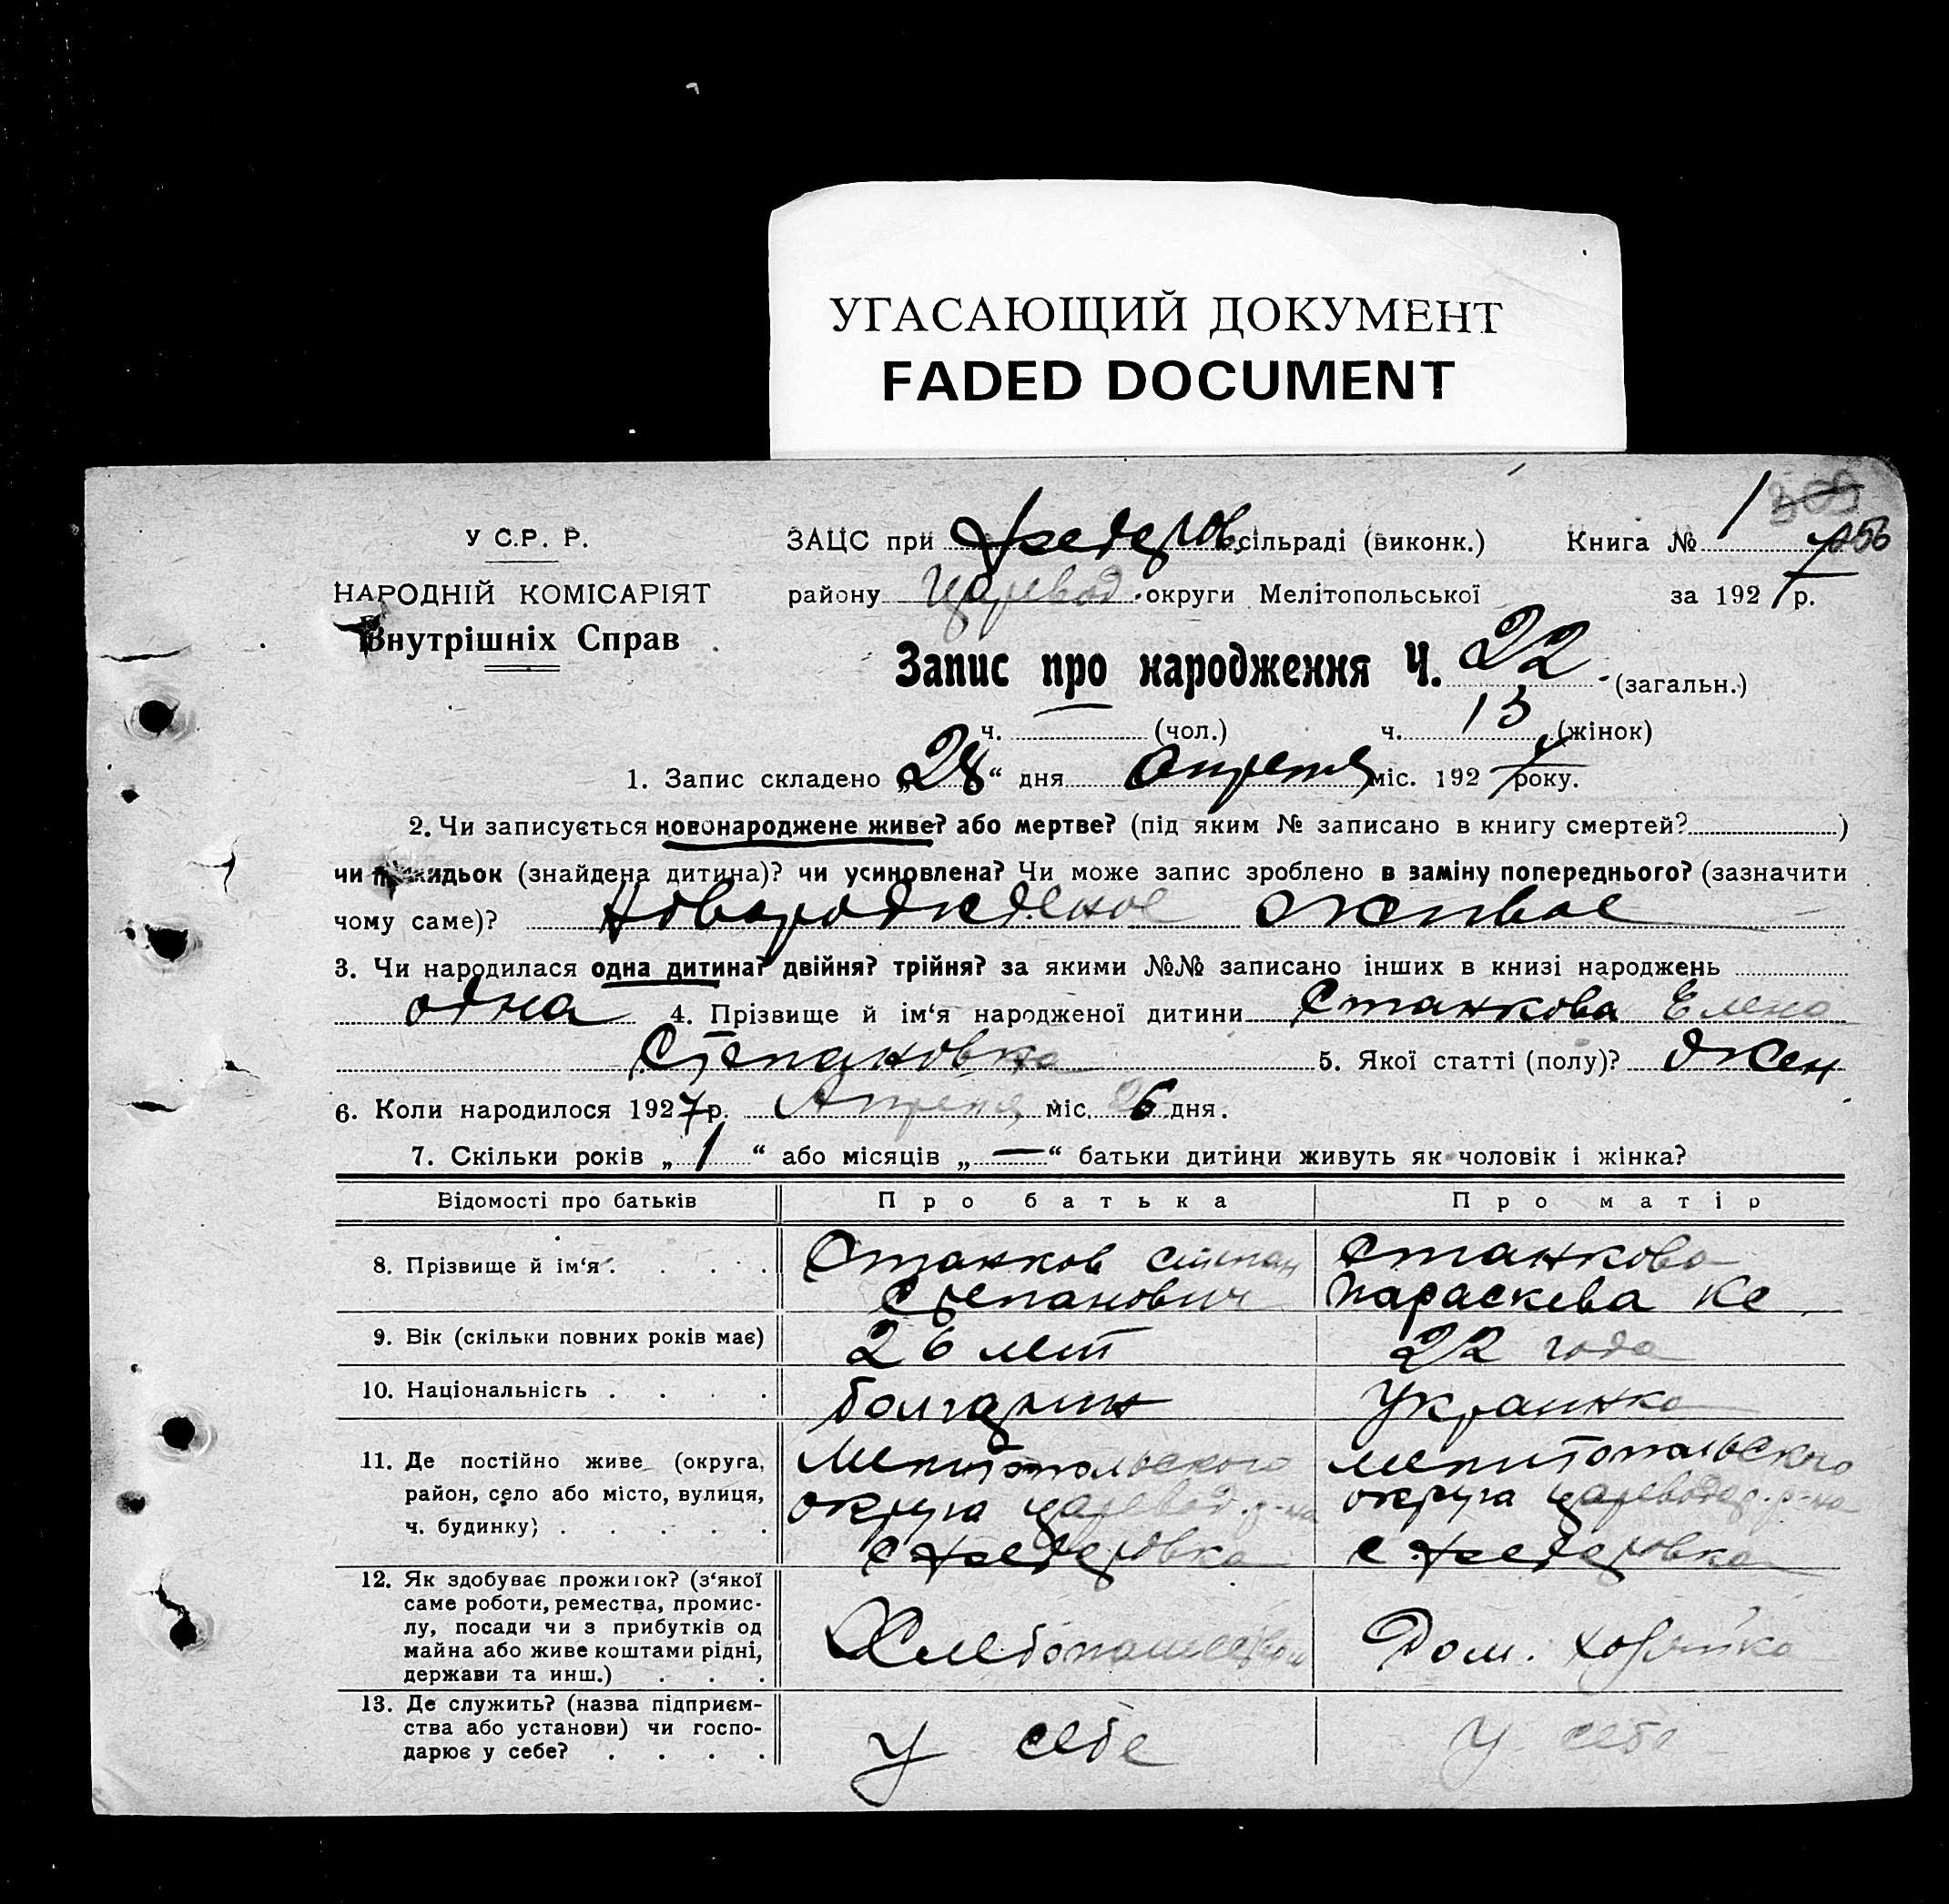 УГАСАЮЩИЙ ДОКУМЕНТ
FADED DOCUMENT
У С.Р. Р.
НАРОДНІЙ КОМІСАРІЯТ
Внутрішніх Справ
ЗАЦС при Федеров. сільраді (виконк.) Книга № 1
району Царевод. округи Мелітопольської за 1927 р.
Запис про народження Ч. 22 (загальн.)
ч. (чол.) ч. 13 (жінок)
1. Запис складено „28“ дня Апреля міс. 1927 року.
2. Чи записується новонароджене живе? або мертве? (під яким № записано в книгу смертей? )
чи підкидьок (знайдена дитина)? чи усиновлена? Чи може запис зроблено в заміну попереднього? (зазначити
чому саме)? Новорожденое живое
3. Чи народилася одна дитина? двійня? трійня? за якими №№ записано інших в книзі народжень
одна 4. Прізвище й ім‘я народженої дитини Станкова Елена
Степановна 5. Якої статті (полу)? жен
6. Коли народилося 1927 р. Апреля міс. 26 дня.
7. Скільки років „1“ або місяців „—“ батьки дитини живуть як чоловік і жінка?
Відомості про батьків Про батька Про матір
8. Прізвище й ім‘я . Станков Степан Степанович Станкова Параскева Ке
9. Вік (скільки повних років має) 26 лет 22 года
10. Національність . болгарин Украинка
11. Де постійно живе (округа, район, село або місто, вулиця, ч. будинку) . Мелитопольского округа царевод. р-на с Федеровка мелитопольского округа цареводар. р-на с Федеровка
12. Як здобуває прожиток? (з‘якої
саме роботи, ремества, промис-
лу, посади чи з прибутків од
майна або живе коштами рідні,
держави та инш.) . Хлебопашеством Дом. хозяйка
13. Де служить? (назва підприєм-
ства або установи) чи госпо-
дарює у себе? . у себе у себе